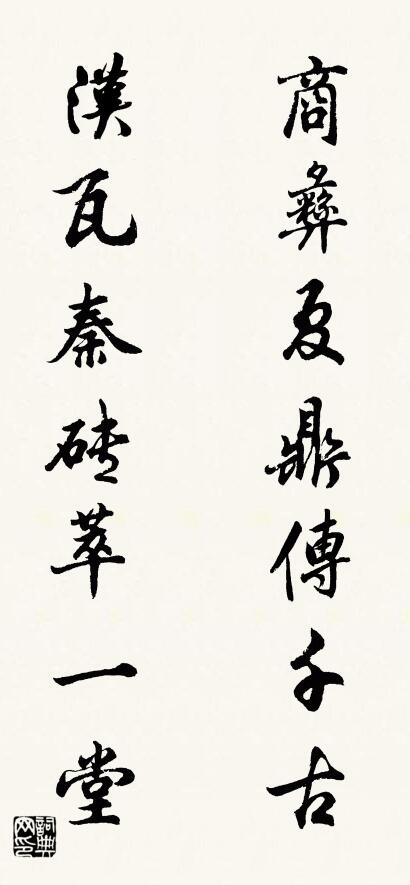 商彝夏鼎傳千古
漢瓦秦砖萃一堂
詞典網印